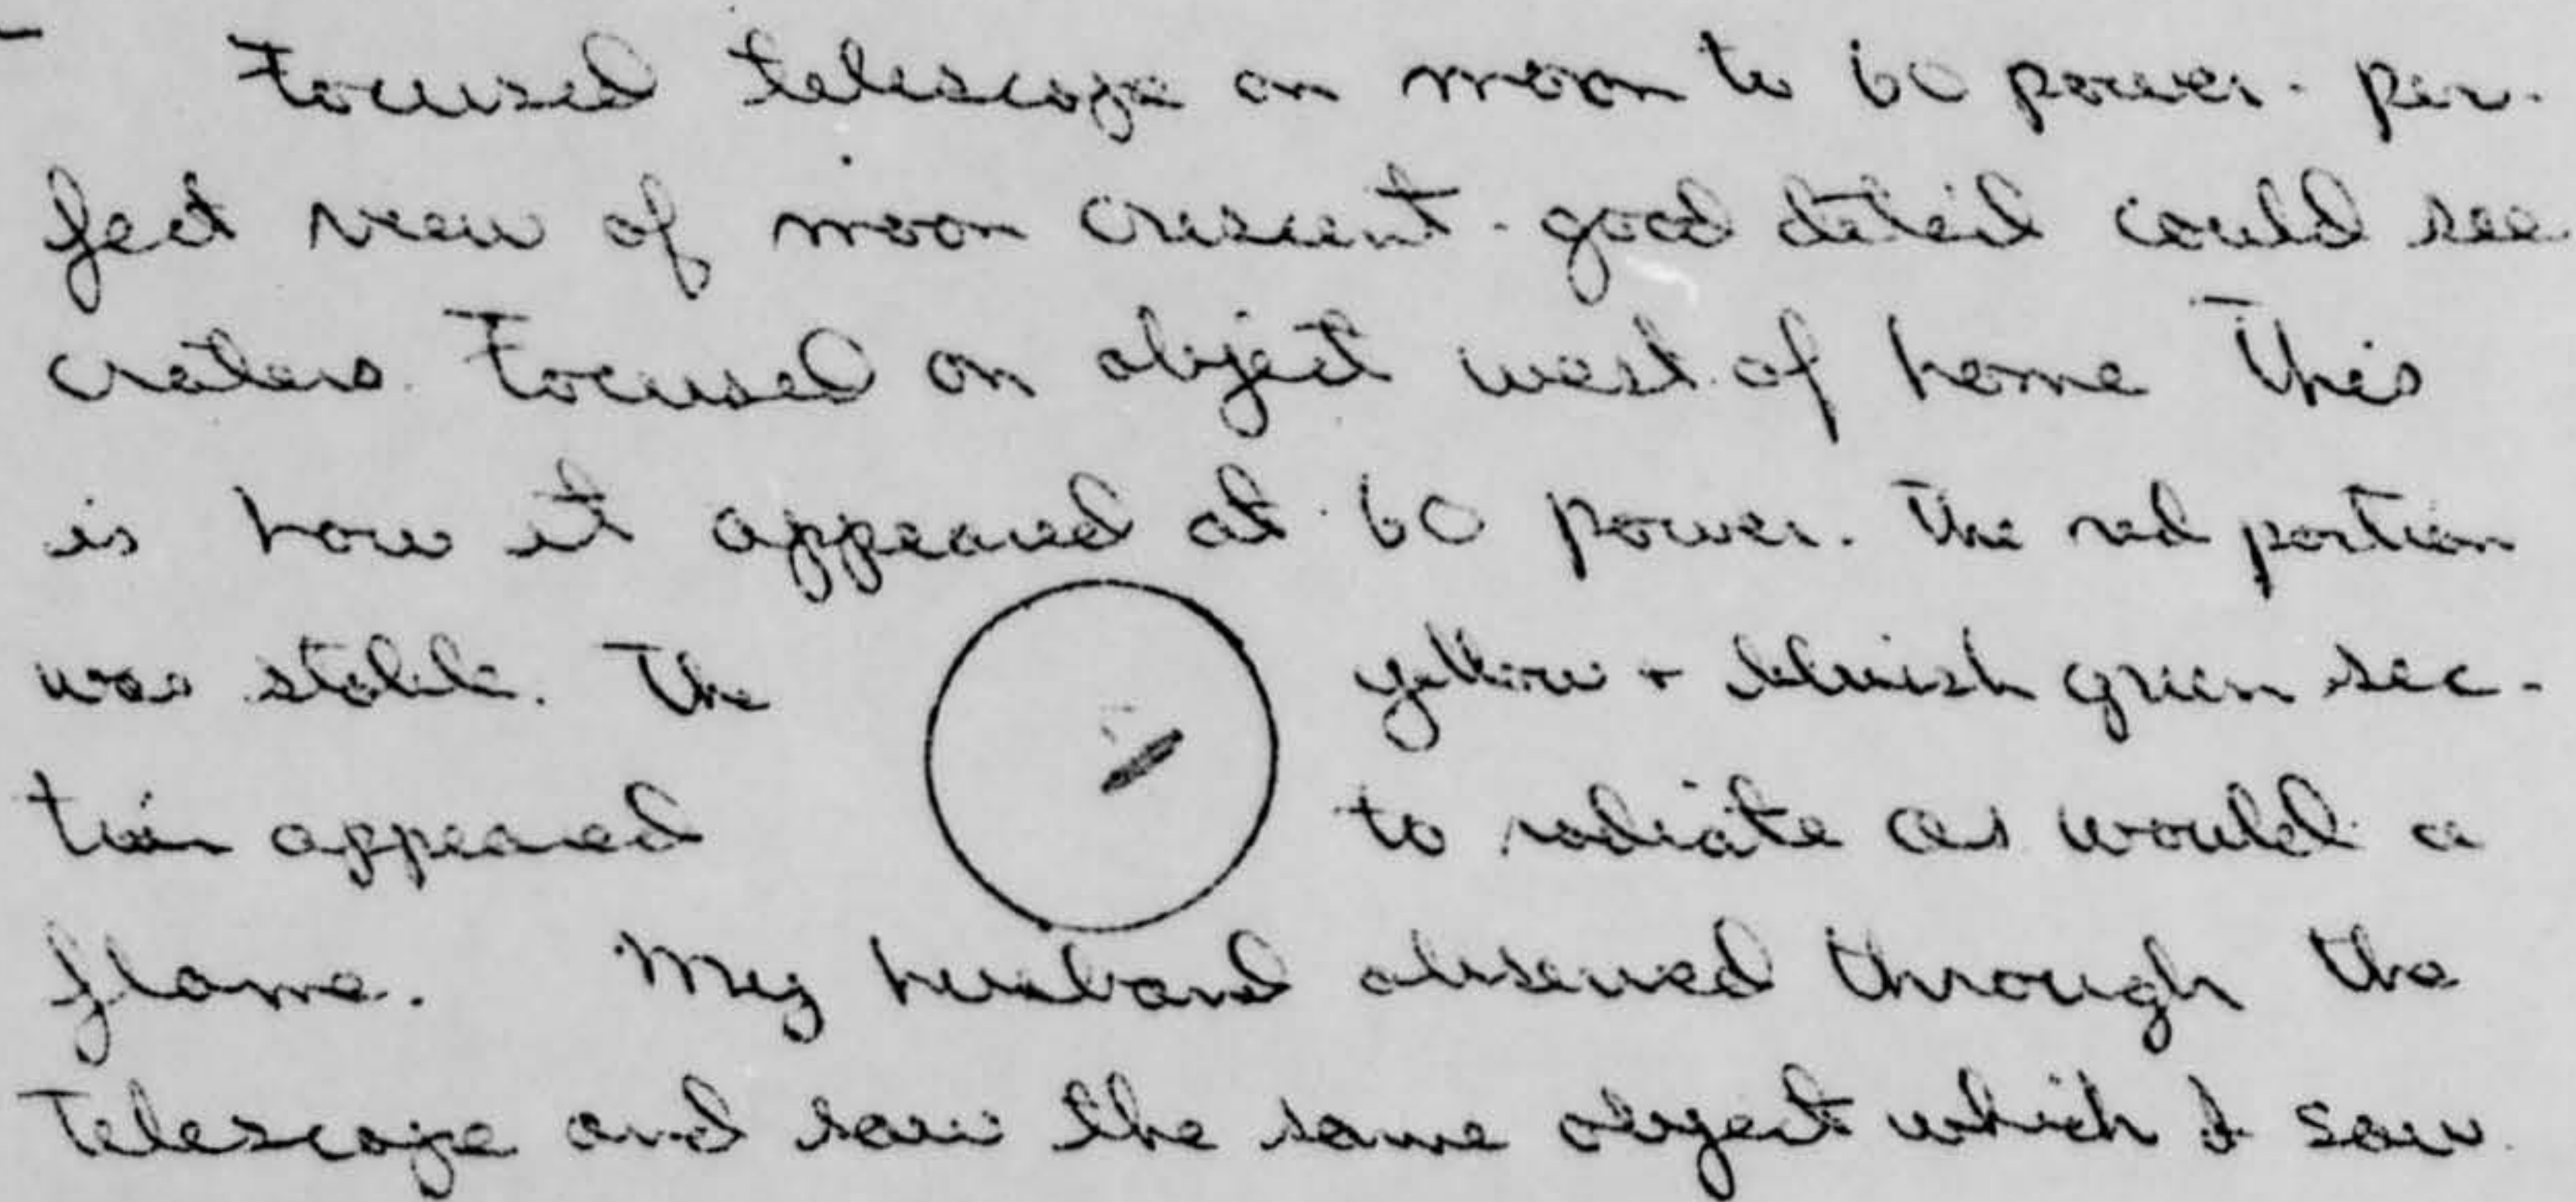 Focused telescope on moon to 60 power. per-
fect view of moon crescent - good detail could see
craters. Focused on object west of home This
is how it appeared at 60 power. The red portion
was stable. The yellow + bluish green sec-
tion appeared to radiate as would a
flame. My husband observed through the
Telescope and saw the same object which I saw